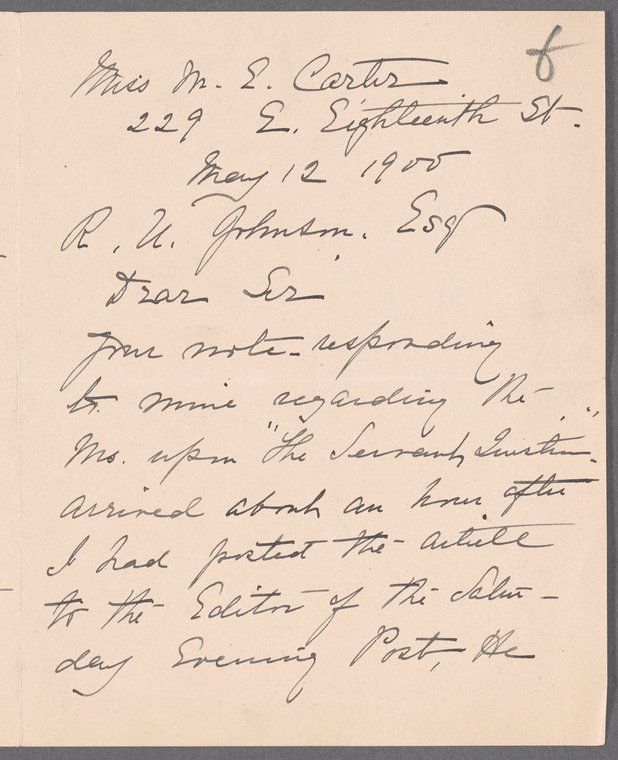 6
Miss M. E. Carter
229 E. Eighteenth St.
May 12 1900
R. U. Johnson. Esq
Dear Sir
Your note - responding
to mine regarding the
Ms. upon "The Servant Question."
arrived about an hour after
I had posted the article
to the Editor of the Satur-
day Evening Post, He